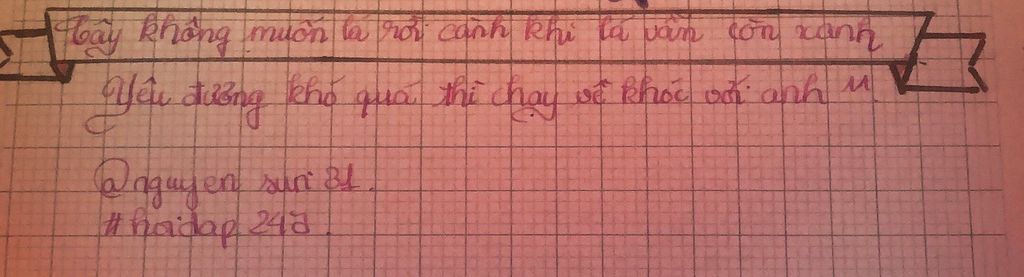 Cây không muốn lá rời cành khi lá vẫn còn xanh
Yêu đương khó quá thì chạy về khóc với anh
@nguyen sun 31.
#hoidap 247